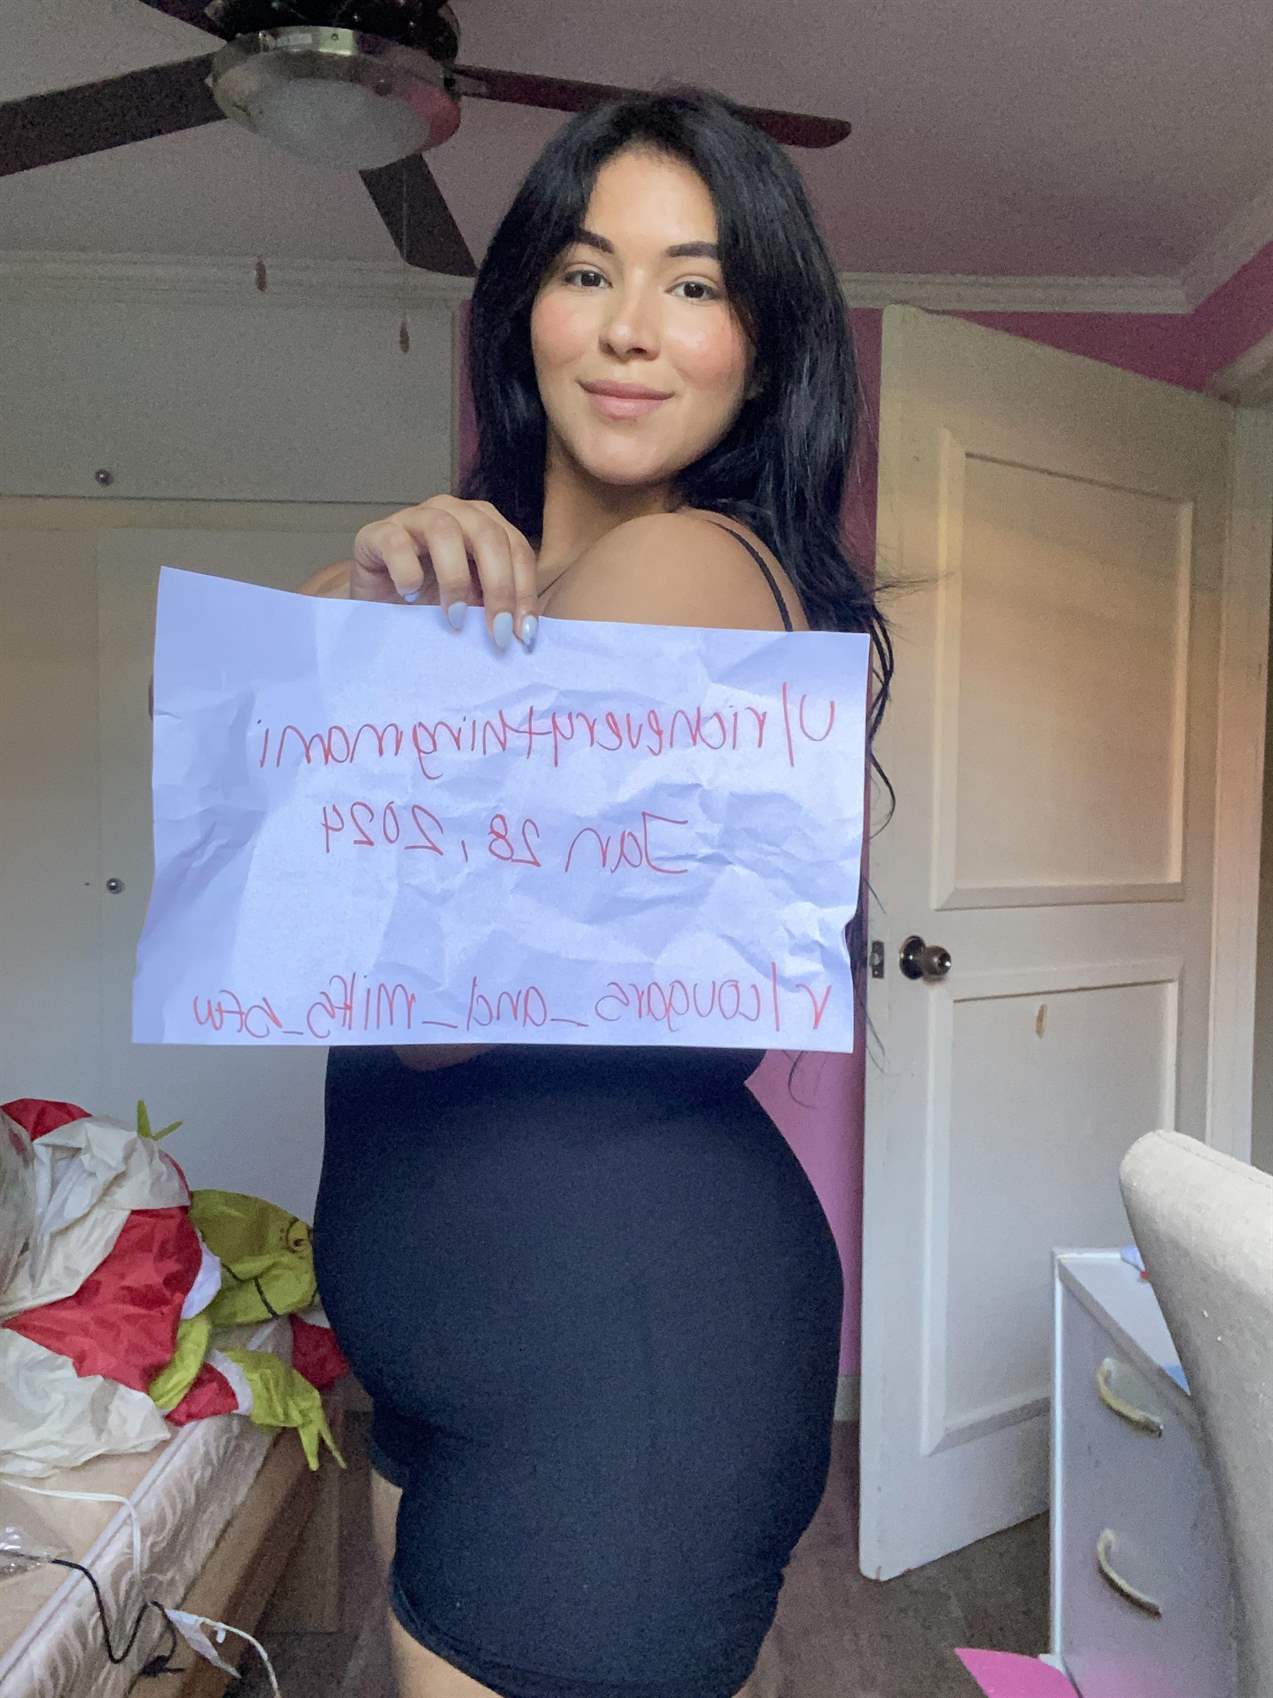 u/richeverythingmami
Jan 28, 2024
r/cougars_and_milfs_sfw